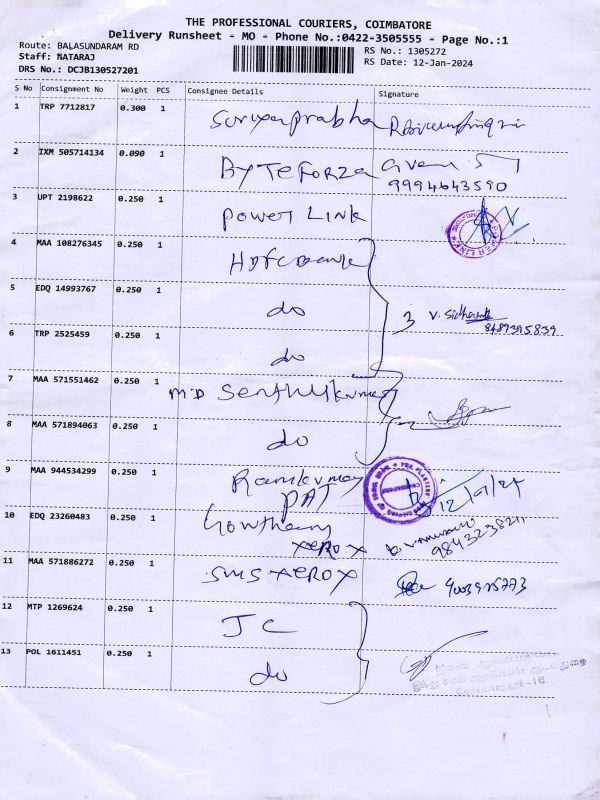 THE PROFESSIONAL COURIERS, COIMBATORE
Delivery Runsheet - MO - Phone No.:0422-3505555 - Page No.:1
Route: BALASUNDARAM RD
RS No.: 1305272
Staff: NATARAJ
RS Date: 12-Jan-2024
DRS No.: DCJB130527201
S No Consignment No Weight PCS Consignee Details Signature
1 TRP 7712817 0.300 1 Suriyaprabha
2 IXM 505714134 0.090 1 BYTEFORZA
9994643590
3 UPT 2198622 0.250 1 Power Link
4 MAA 108276345 0.250 1 HDFC Bank
5 EDQ 14993767 0.250 1 do 3 V. Sidharth
8489395839
6 TRP 2525459 0.250 1 do
7 MAA 571551462 0.250 1 M.D Senthilkumar
8 MAA 571894063 0.250 1 do
9 MAA 944534299 0.250 1 Ramkumar
PAT
12/01/24
10 EDQ 23260483 0.250 1 Gowtham
XEROX
11 MAA 571886272 0.250 1 SMS XEROX
12 MTP 1269624 0.250 1 JC
13 POL 1611451 0.250 1 do